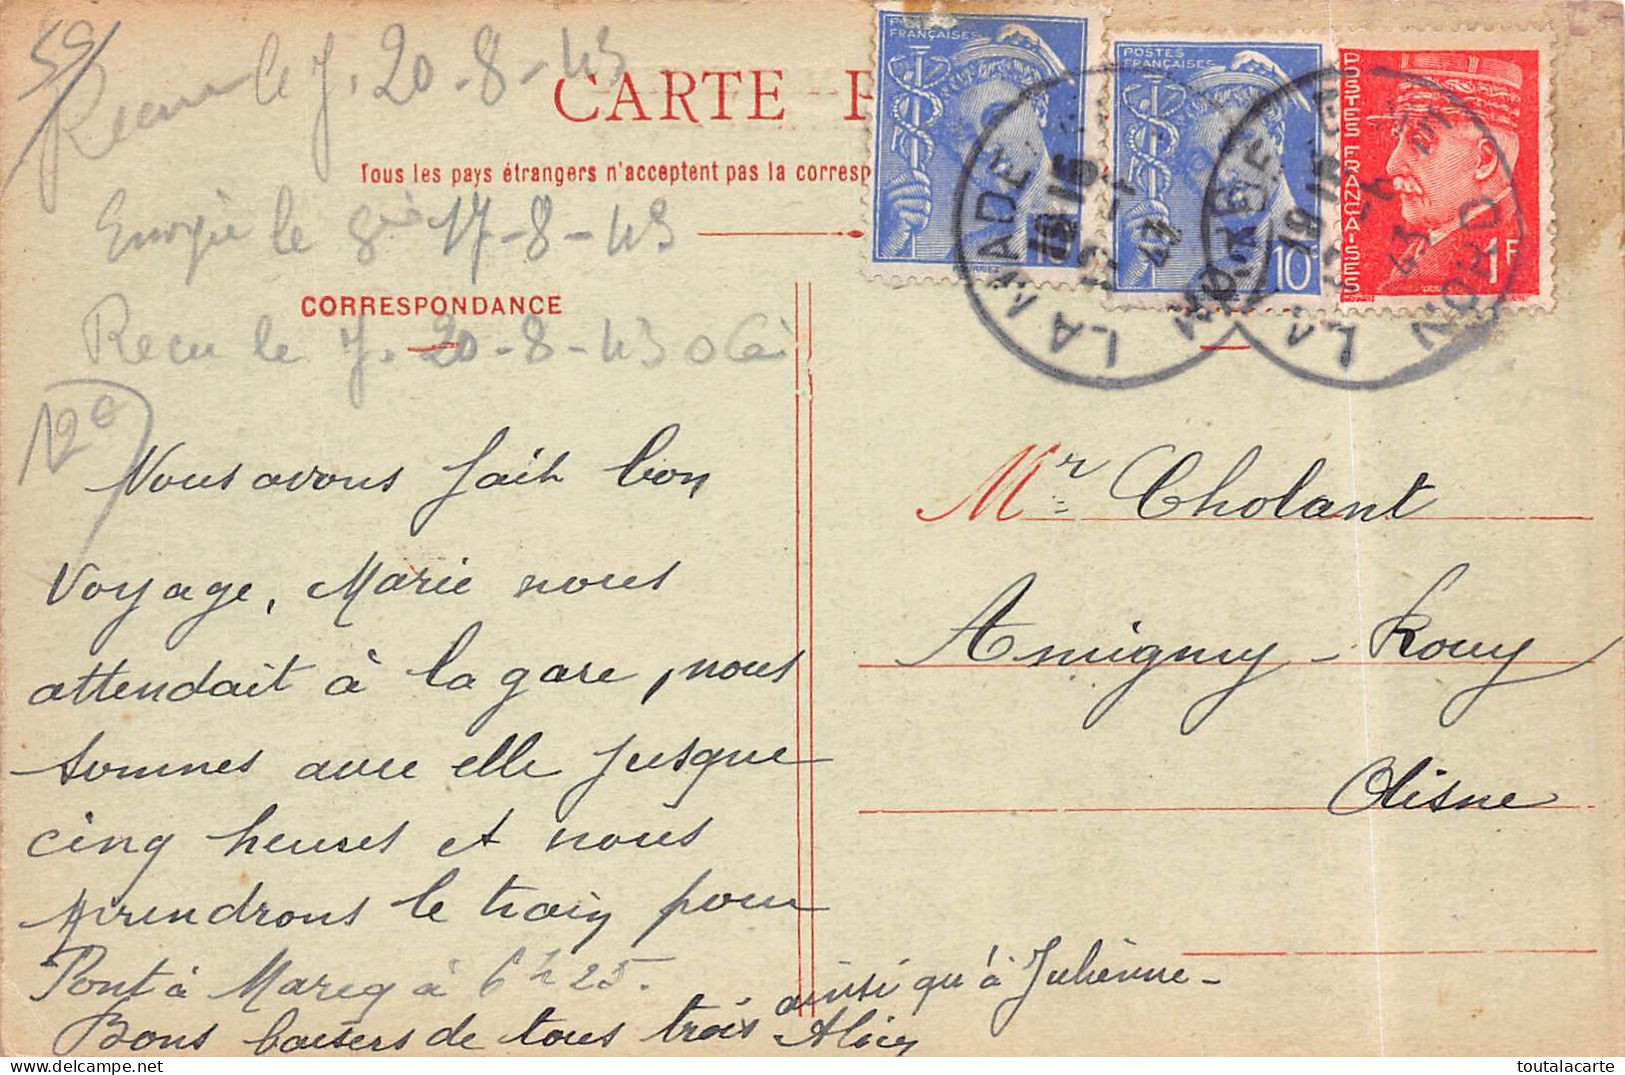 59
Recu le J. 20-8-43
CARTE P
Tous les pays étrangers n'acceptent pas la corresp
Envoyée le 17-8-43
CORRESPONDANCE
Recu le J. 20-8-43
12€
POSTES
FRANÇAISES
POSTES
FRANÇAISES
10
POSTES FRANÇAISES
1F
LA MADELEINE
NORD
LA MADELEINE
NORD
Nous avons fait bon
voyage, Marie nous
attendait à la gare, nous
sommes avec elle jusque
cinq heures et nous
prendrons le train pour
Pont à Marcq à 6h25.
Bons baisers de tous trois ainsi qu'à Julienne -
Mr Cholant
Amigny - Rouy
Aisne
toutalacarte